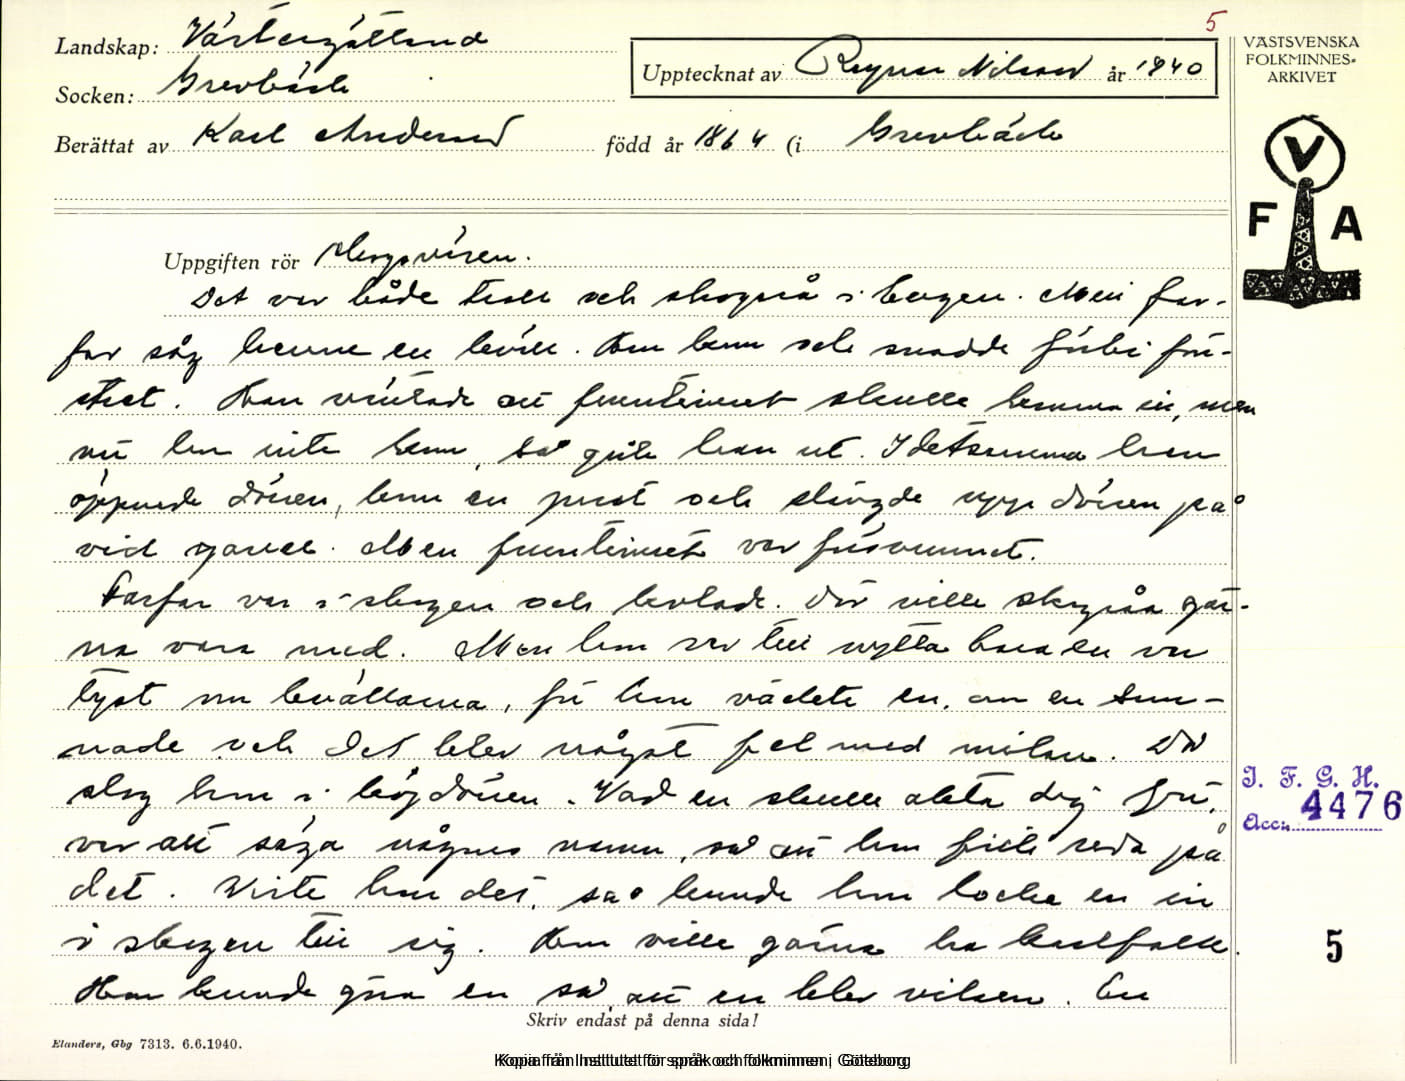 5
Landskap: Västergötland
Upptecknat av Ragnar Nilsson år 1940
Socken: Grevbäck
Berättat av Karl Andersson född år 1864 (i Grevbäck
VÄSTSVENSKA
FOLKMINNES-
ARKIVET
V
F A
Uppgiften rör Skogsråen.
Det var både troll och skogsrå i bergen. Men far-
far såg henne en kväll. Hon kom och snodde förbi fön-
stret. Han väntade att fruntimret skulle komma in, men
när hon inte kom, så gick han ut. I detsamma han
öppnade dören, kom en pust och slängde upp dören på
vid gavel. Men fruntimret var försvunnet.
Farfar var i skogen och kolade. Där ville skogsråa gär-
na vara med. Men hon var till nytta bara en var
tyst om kvällarna, för hon väckte en, om en som-
nade och det blev något fel med milan. Då
slog hon i kojdören. Vad en skulle akta dej för,
var att säga någres namn, så att hon fick reda på
det. Visste hon det, så kunde hon locka en in
i skogen till sig. Hon ville gärna ha karlfolk.
Hon kunde göra en så, att en blev vilsen. En
Skriv endast på denna sida!
I. F. G. H.
Acc. 4476
5
Elanders, Gbg 7313. 6.6.1940.
Kopia från Institutet för språk och folkminnen i Göteborg